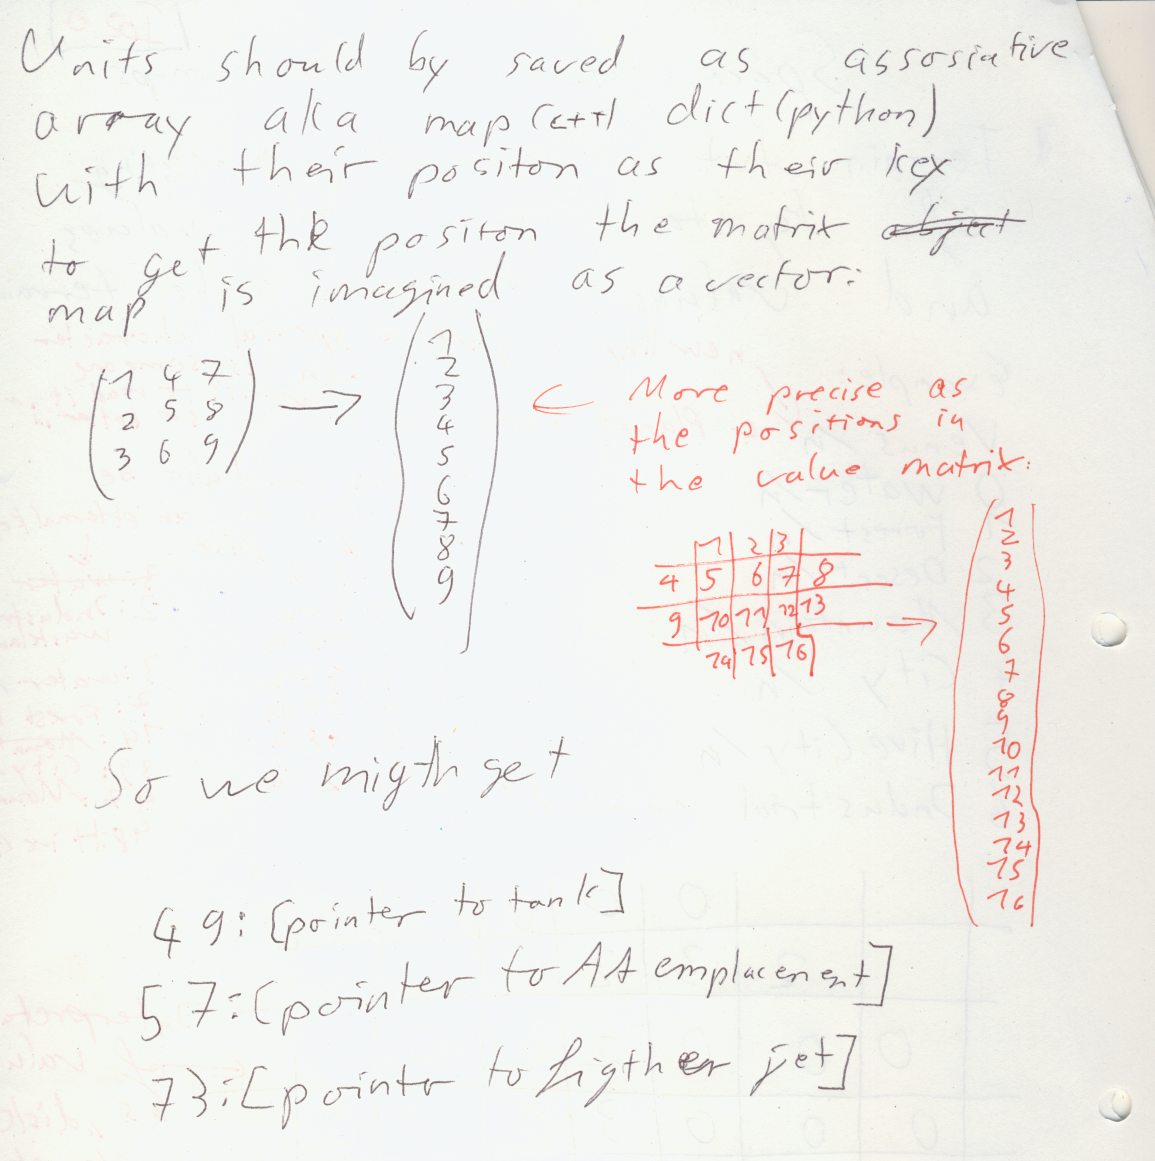 Units should by saved as assosiative
array aka map (c++) dict (python)
with their positon as their key
to get the positon the matrix object
map is imagined as a vector:
1 4 7
2 5 8
3 6 9
1
2
3
4
5
6
7
8
9
More precise as
the positions in
the value matrix:
1 2 3
4 5 6 7 8
9 10 11 12 13
14 15 16
1
2
3
4
5
6
7
8
9
10
11
12
13
14
15
16
So we migth get
49: [pointer to tank]
57: [pointer to AA emplacement]
73: [pointer to figther jet]